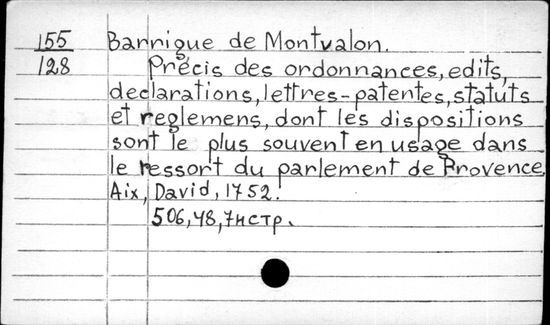 155 Barrigue de Montvalon.
128 Précis des ordonnances, edits,
declarations, lettres-patentes, statuts
et reglemens, dont les dispositions
sont le plus souvent en usage dans
le ressort du parlement de Provence.
Aix, David, 1752.
506, 48, 7нстр.